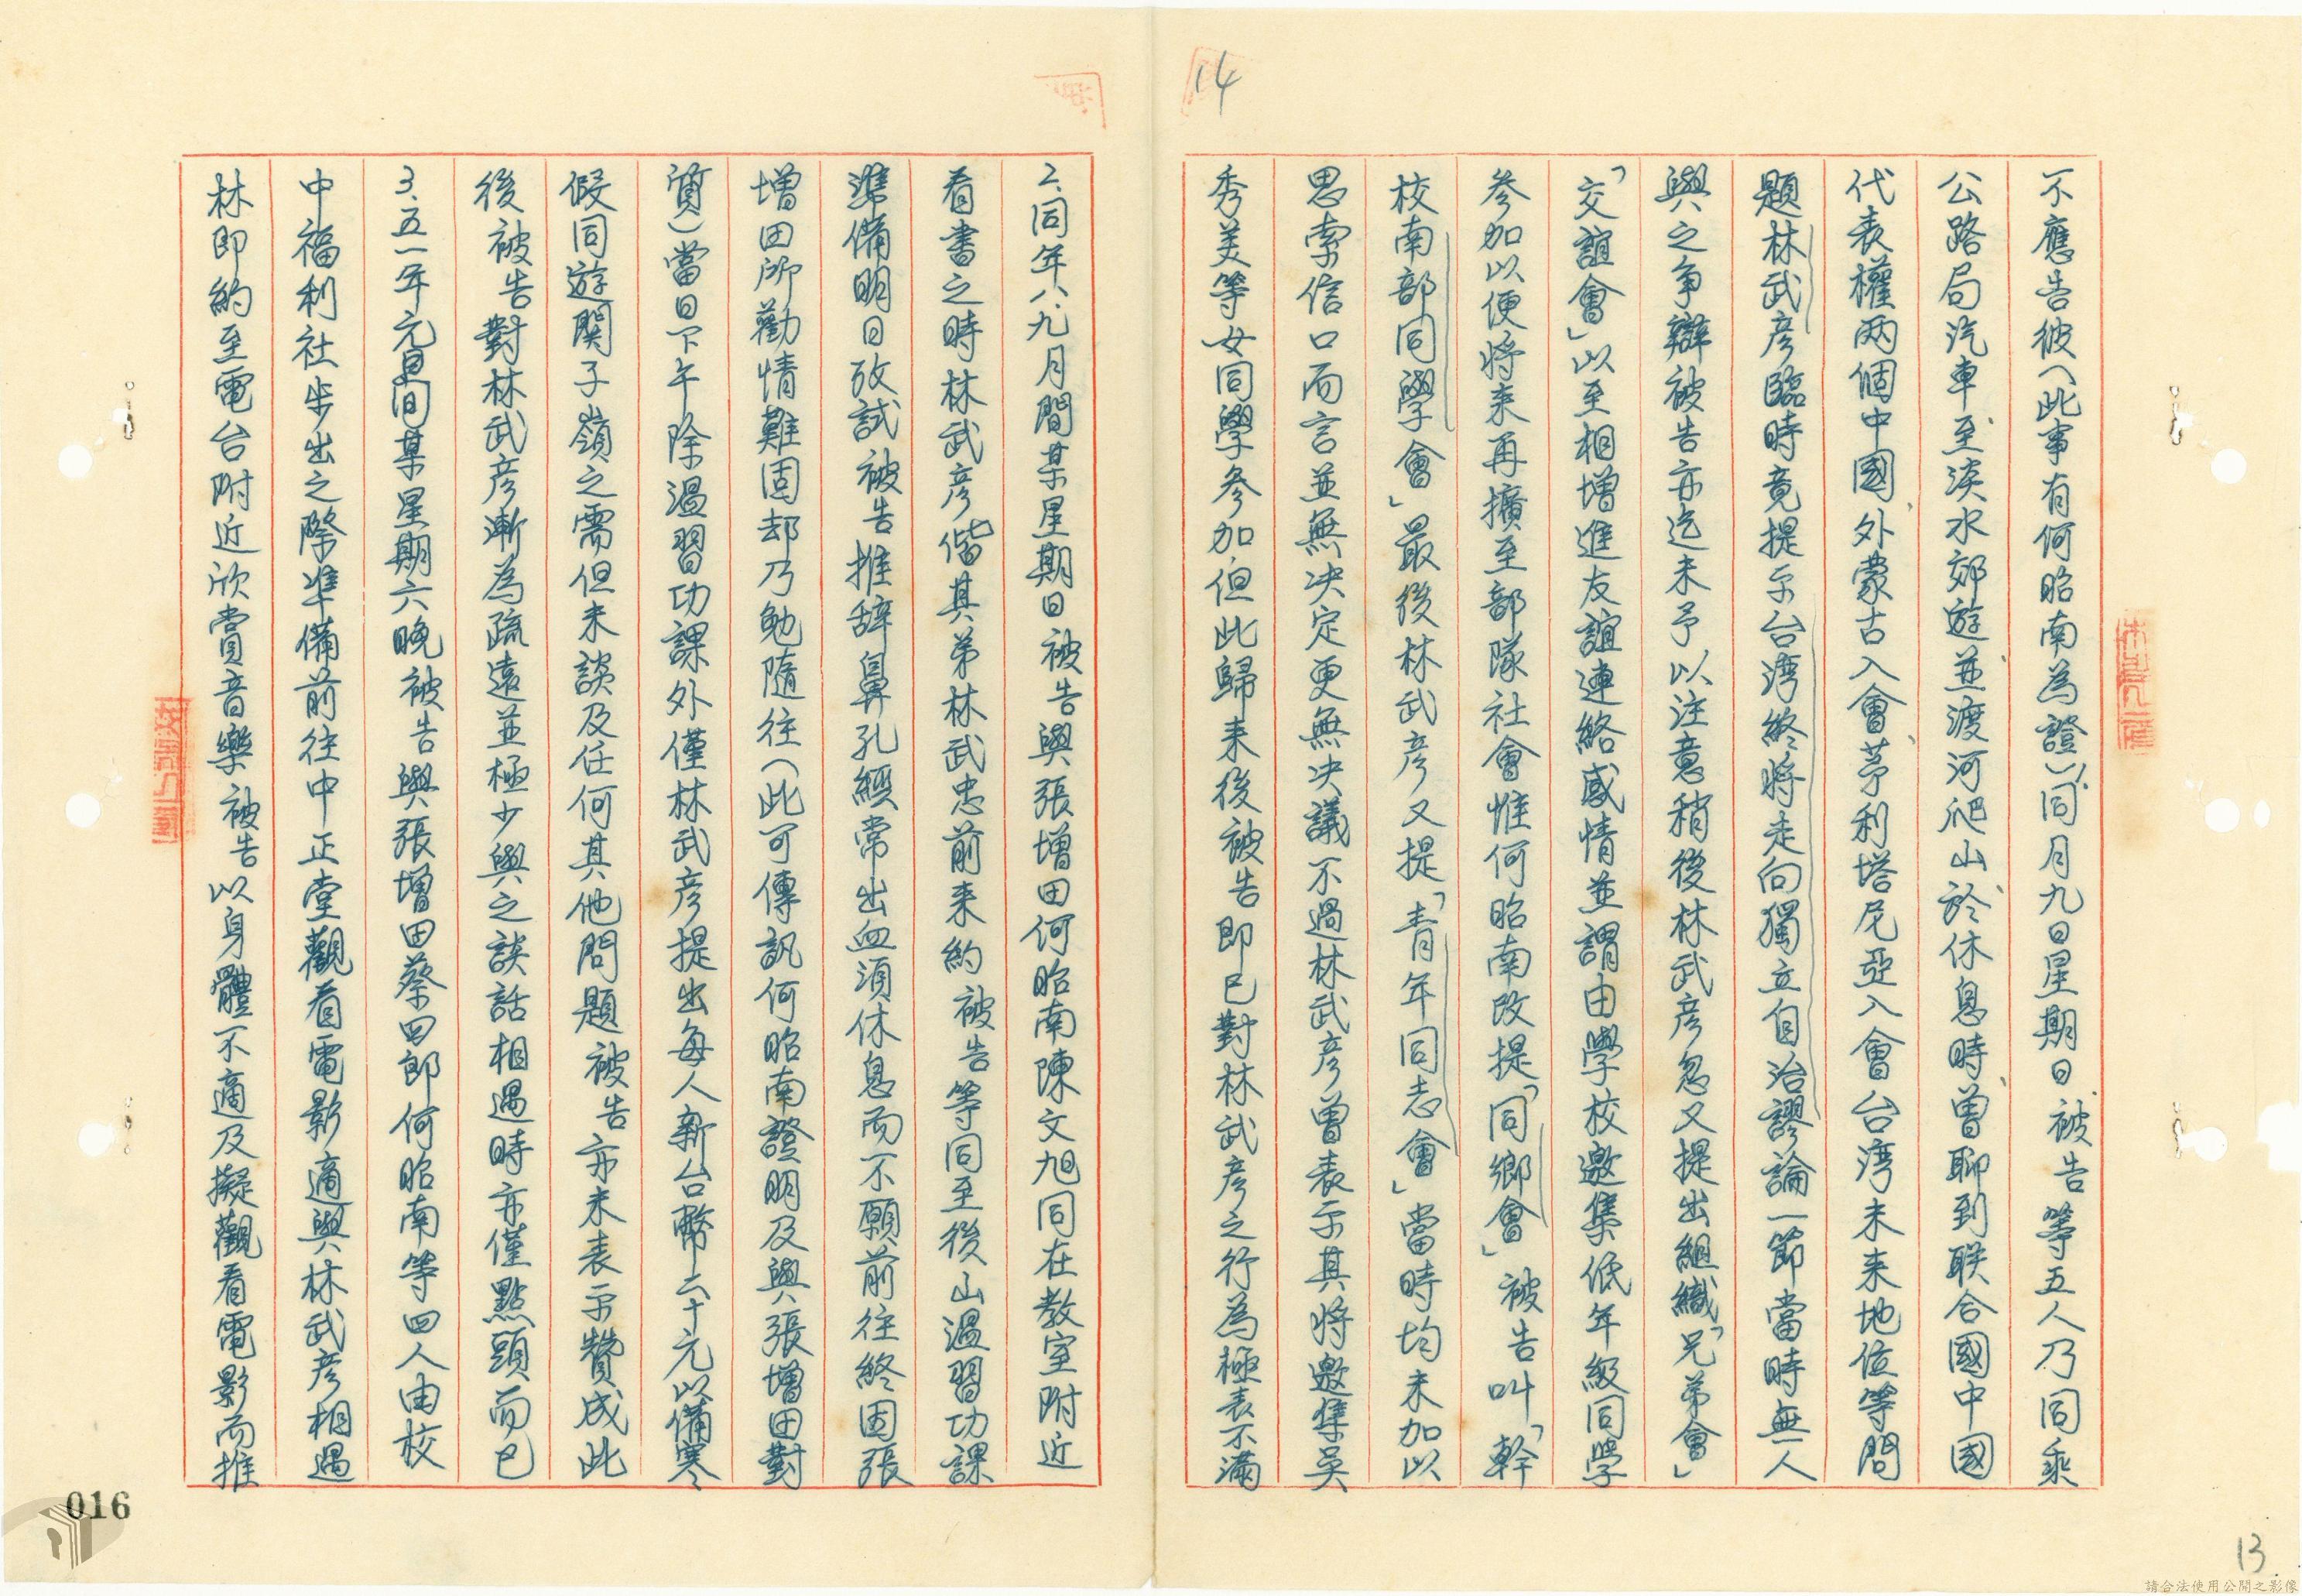 14
不應告彼(此事有何昭南為證)同月九日星期日被告等五人乃同乘
公路局汽車至淡水郊遊並渡河爬山於休息時曾聊到联合國中國
代表權兩個中國外蒙古入會茅利塔尼亞入會台湾未来地位等問
題林武彦臨時竟提示台湾終将走向獨立自治謬論一節當時無一人
與之争辯被告亦迄未予以注意稍後林武彦忽又提出組織「兄弟會」
「交誼會」以至相增進友誼連絡感情並謂由學校邀集低年級同學
参加以便将来再擴至部隊社會惟何昭南改提「同鄉會」被告叫「幹
校南部同學會」最後林武彦又提「青年同志會」當時均未加以
思索信口而言並無决定更無决議不過林武彦曾表示其将邀集吴
秀美等女同學参加但此歸来後被告即已對林武彦之行為極表不滿
2、同年八、九月間某星期日被告與張增田何昭南陳文旭同在教室附近
看書之時林武彦偕其弟林武忠前来約被告等同至後山温習功課
準備明日攷試被告推辞鼻孔經常出血須休息而不願前往終因張
增田所勸情難固却乃勉隨往(此可傳訊何昭南證明及與張增田對
質)當日下午除温習功課外僅林武彦提出每人新台幣二十元以備寒
假同遊関子嶺之需但未談及任何其他問題被告亦未表示贊成此
後被告對林武彦漸為疏遠並極少與之談話相遇時亦僅點頭而已
3、五一年元月間某星期六晚被告與張增田蔡四郎何昭南等四人由校
中福利社步出之際準備前往中正堂觀看電影適與林武彦相遇
林即約至電台附近欣賞音樂被告以身體不適及擬觀看電影而推
016
13
請合法使用公開之影像